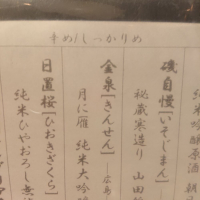 辛め/しっかりめ
純米吟醸原酒 朝
磯自慢[いそじまん]
秘蔵寒造り 山田
金泉[きんせん] 広島
月に雁 純米大吟
日置桜[ひおきざくら]
純米ひやおろし 無